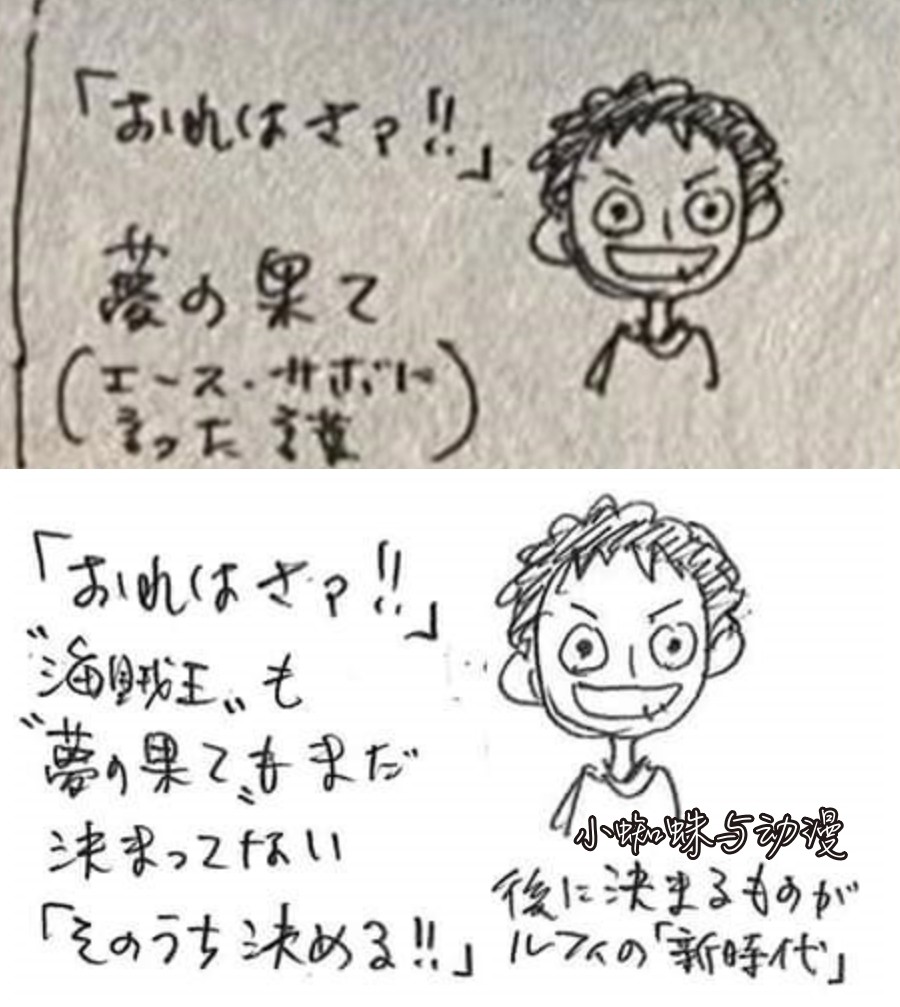 「おれはさァ!!」
夢の果て
(エース・サボに
言った言葉)
「おれはさァ!!」
"海賊王"も
"夢の果て"もまだ
決まってない
「そのうち決める!!」
小蜘蛛与动漫
後に決まるものが
ルフィの「新時代」